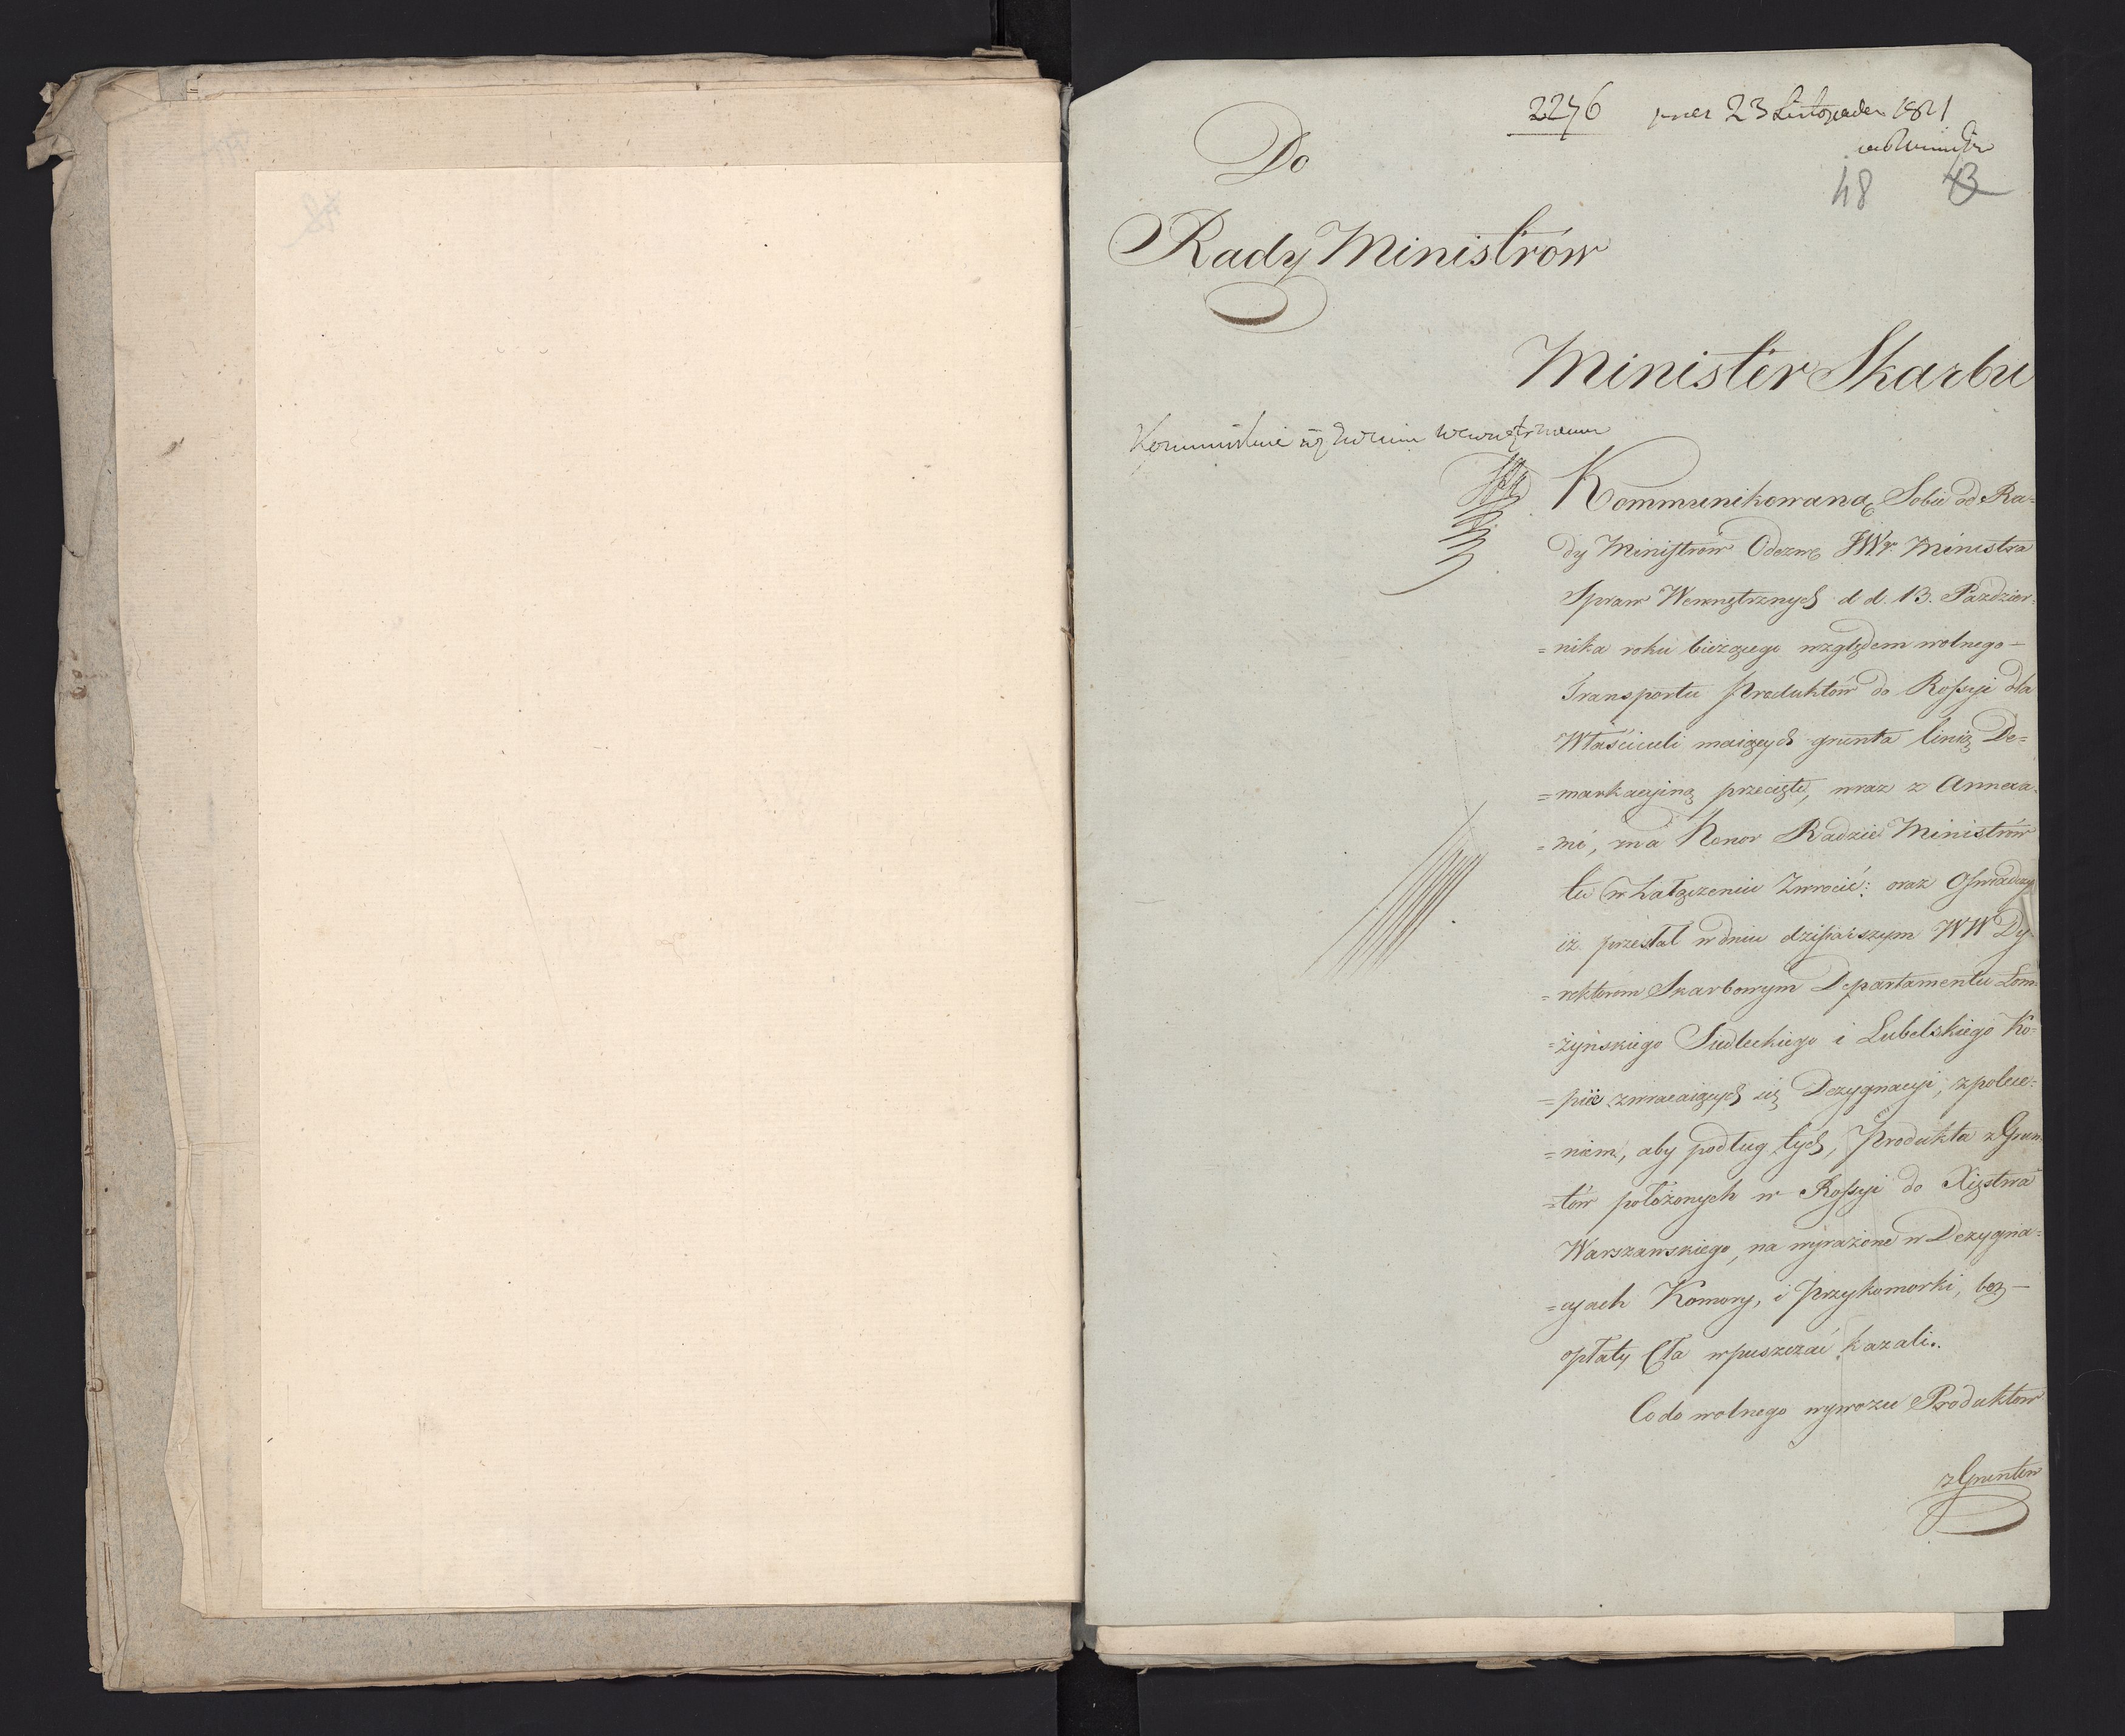 2276 prez 23 Listopada 1811
48 43
Do
Rady Ministrów
Minister Skarbu
Kommunikowaną Sobie od Ra=
dy Ministrów Odezwę JWgo Ministra
Spraw Wewnętrznych d d. 13. Paździer=
=nika roku bieżącego względem wolnego
Transportu Produktów do Rossyi dla
Właścicieli maiących grunta linią De=
=markacyjną przecięte, wraz z Annexa=
=mi, ma Honor Radzie Ministrów
tu w Załączeniu Zwrócić: oraz Oświadczyć
iż przesłał w dniu dzisiaiszym WW Dy=
=rektorom Skarbowym Departamentu Łom=
=żyńskiego Siedleckiego i Lubelskiego Ko=
=piie zwracaiących się Dezygnacyi, z polece=
=niem, aby podług tych, Produkta z Grun=
=tów położonych w Rossyi do Xięstwa
Warszawskiego, na wyrażone w Dezygna=
=cyach Komory, i Przykomorki, bez
opłaty Cła wpuszczać kazali.
Co do wolnego wywozu Produktow
z Gruntow